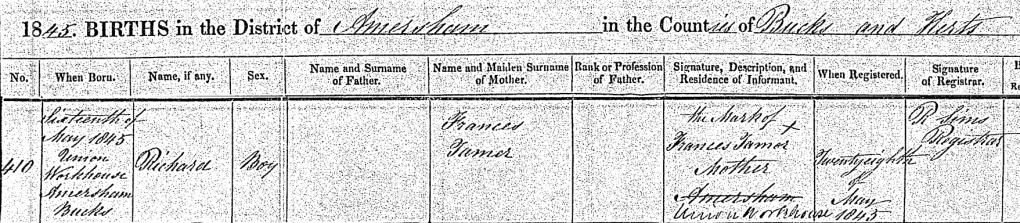 1845. BIRTHS in the District of Amersham in the Counties of Bucks and Herts
No.
When Born.
Name, if any.
Sex.
Name and Surname
of Father.
Name and Maiden Surname
of Mother.
Rank or Profession
of Father.
Signature, Description, and
Residence of Informant.
When Registered.
Signature
of Registrar.
410
Sixteenth of
May 1845
Union
Workhouse
Amersham
Bucks
Richard
Boy
Frances
Tamer
The Mark of
X
Frances Tamer
Mother
Amersham
Union Workhouse
Twentyeighth
of
May
1845
R Sims
Registrar